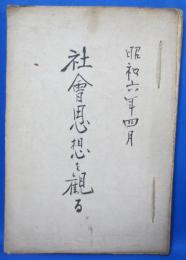 昭和六年四月
社會思想を観る